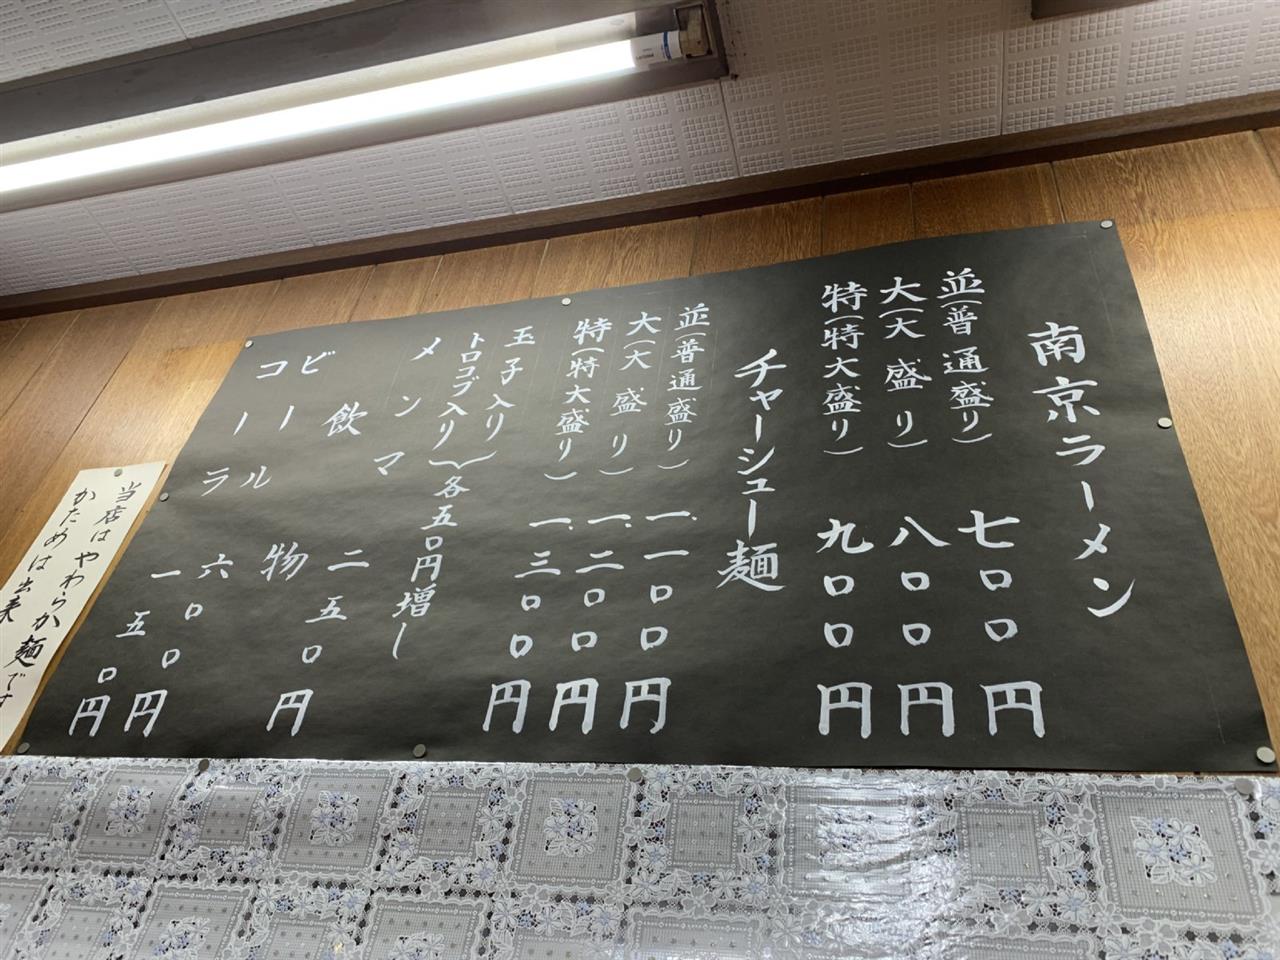 南京ラーメン
並(普通盛り) 七〇〇円
大(大盛り) 八〇〇円
特(特大盛り) 九〇〇円
チャーシュー麺
並(普通盛り) 一、一〇〇円
大(大盛り) 一、二〇〇円
特(特大盛り) 一、三〇〇円
玉子入り
トロコブ入り}各五〇円増し
メンマ 二五〇円
飲物
ビール 六〇〇円
コーラ 一五〇円
当店はやわらか麺です
かためは出来